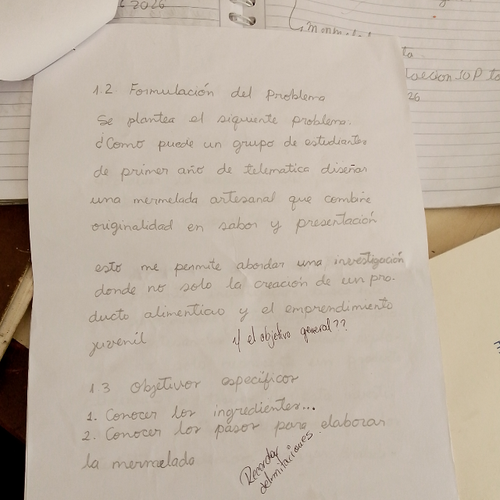 2026
1.2 Formulación del Problema
Se plantea el siguiente problema.
¿Como puede un grupo de estudiantes
de primer año de telematica diseñar
una mermelada artesanal que combine
originalidad en sabor y presentación
esto me permite abordar una investigación
donde no solo la creación de un pro-
ducto alimenticio y el emprendimiento
juvenil
y el objetivo general??
1.3 Objetivos especificos
1. Conocer los ingredientes...
2. Conocer los pasos para elaborar
la mermelada
Recordar
delimitaciones.